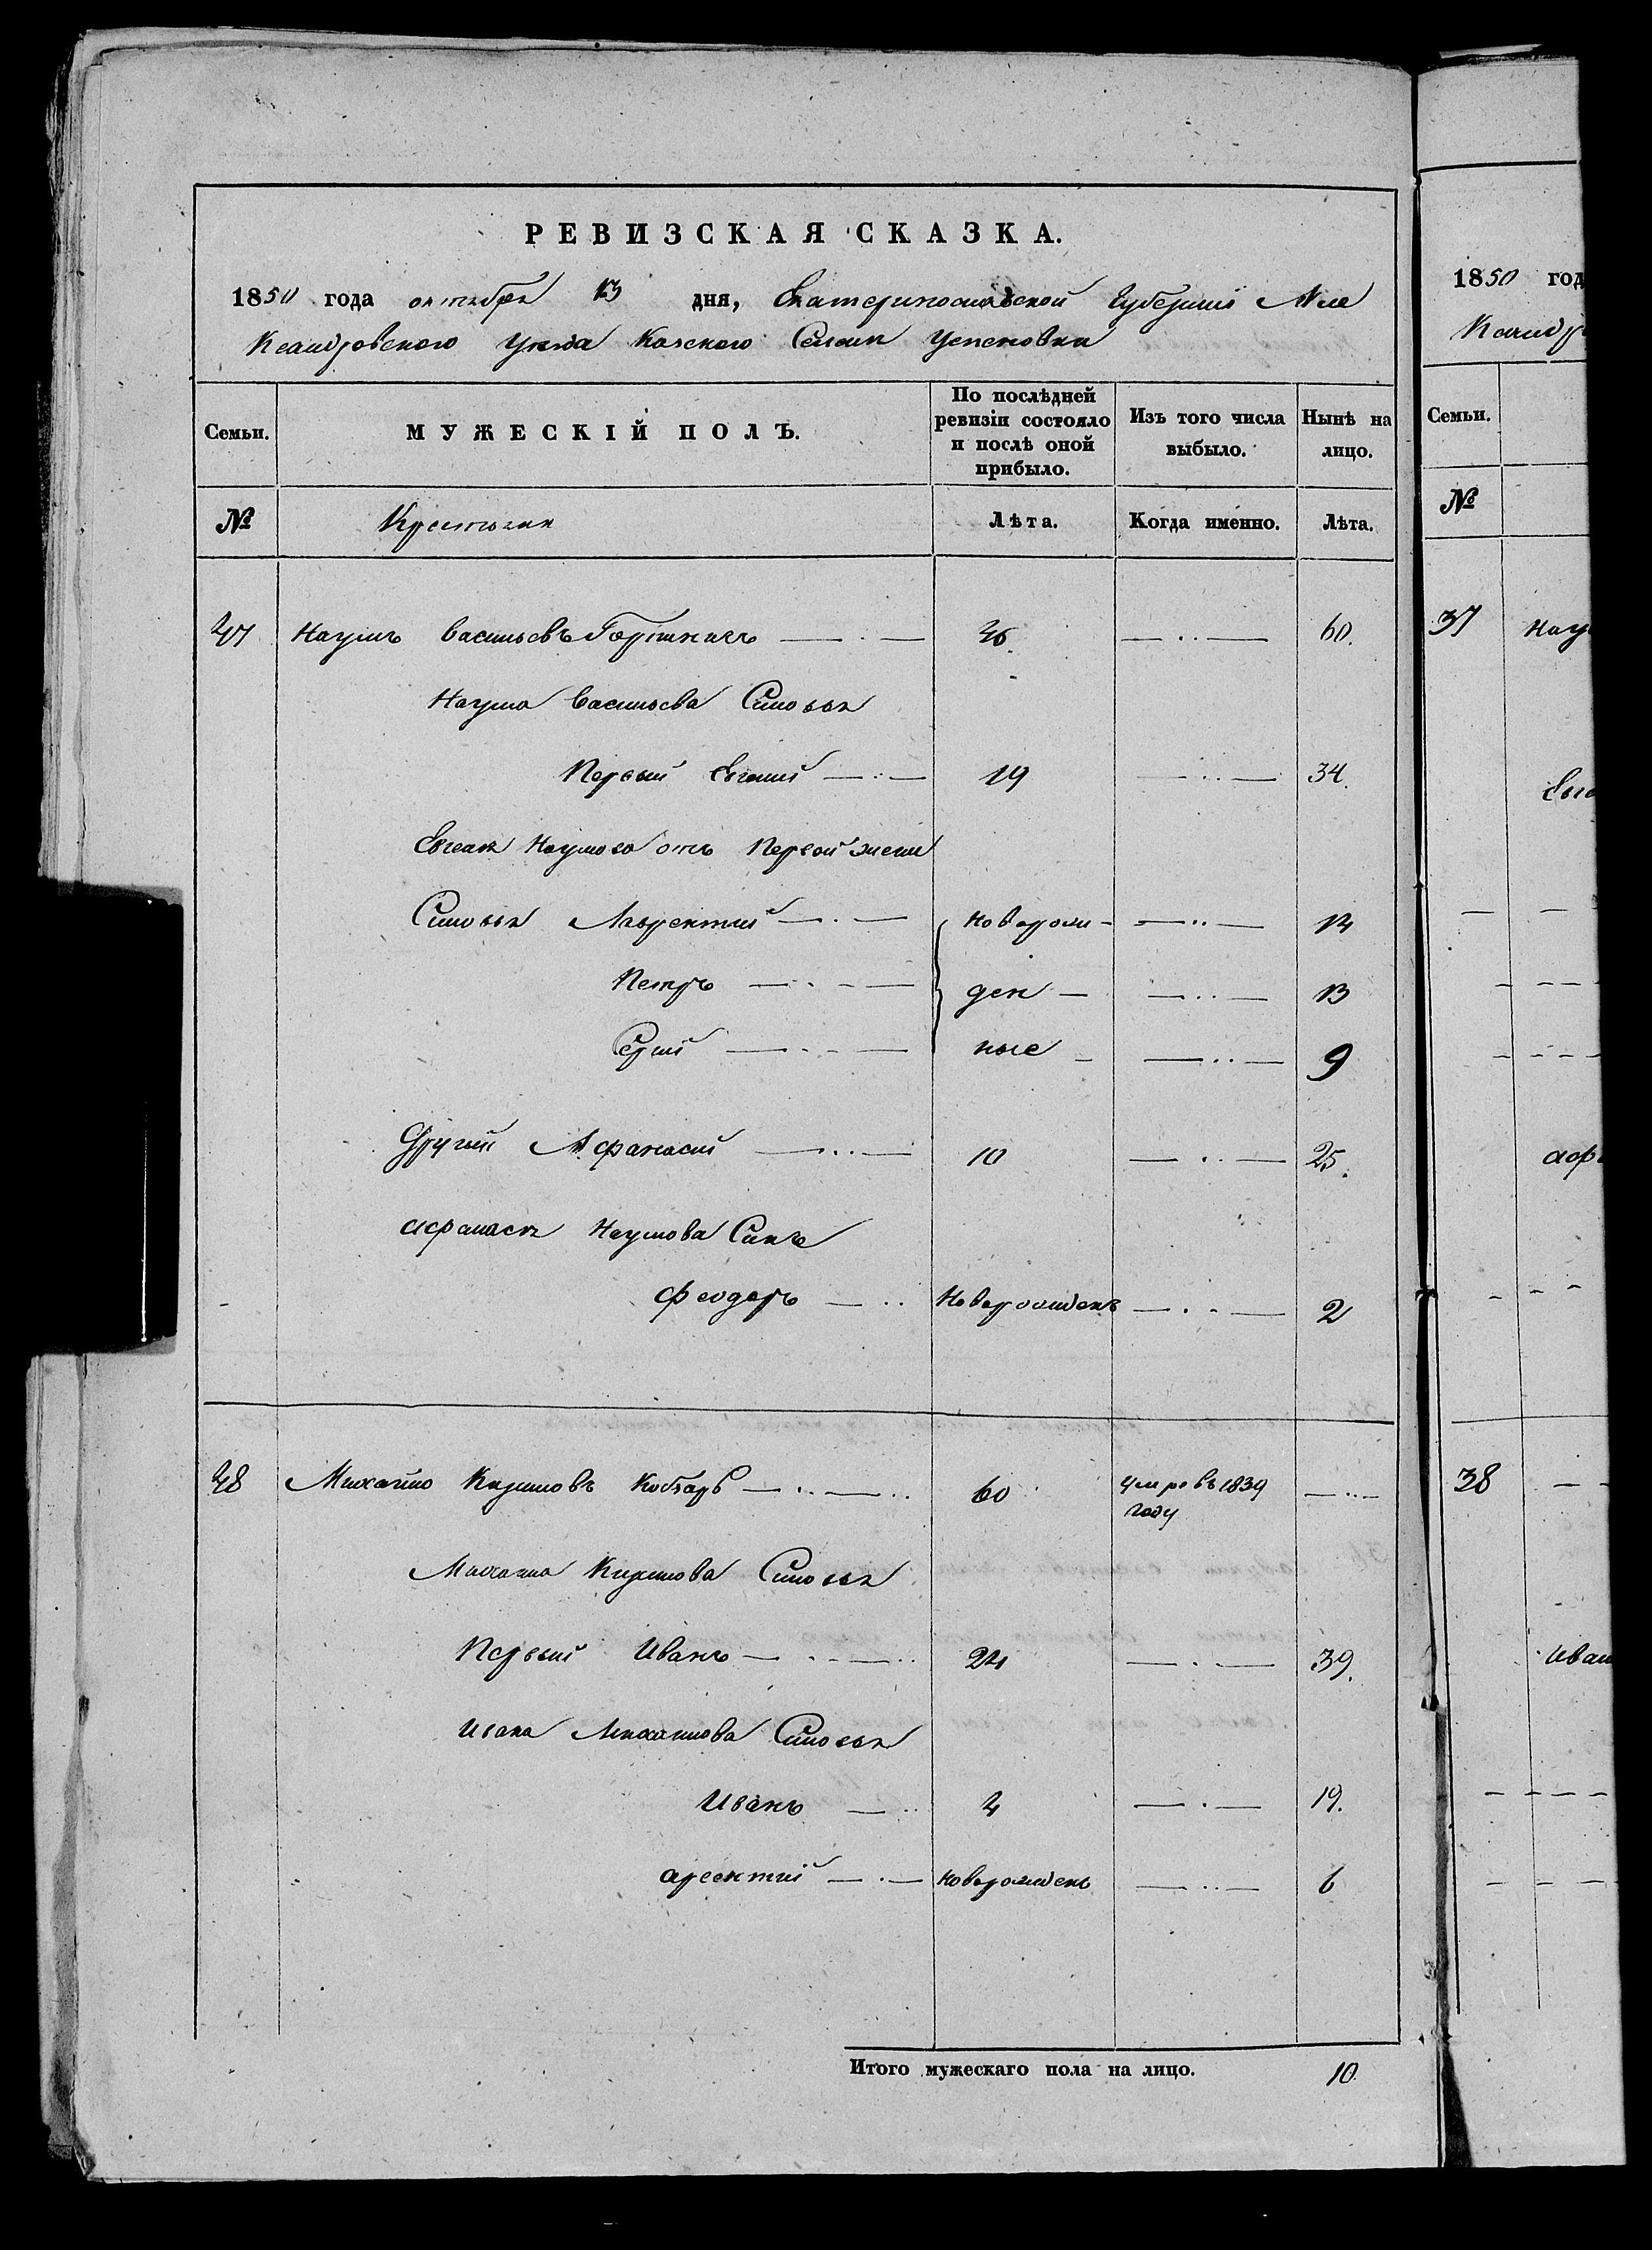 РЕВИЗСКАЯ СКАЗКА.
1850 года октября 13 дня, Екатеринославской Губерніи Але
Ксандровского Уезда Казенного Селения Успеновки
Семьи. МУЖЕСКІЙ ПОЛЪ. По послѣдней ревизіи состояло и послѣ оной прибыло. Изъ того числа выбыло. Нынѣ на лицо.
№ Крестьяня Лѣта. Когда именно. Лѣта.
Наумъ Васильевъ — · — — ·· — 60.
Наума Васильева Сыновья
Первый Евгений — ·· — 19 — ·· — 34.
Евгения Наумова отъ Первой жены
Сыновья Лаврентий — · — новорож- — ·· — 14
Петръ — · - — ден — — ·· — 13
Сергий — · - — ные - — ·· — 9
Другий Афанасий — ·· — 10 — · — 25.
Афанасия Наумова Сынъ
Феодоръ — ·· Новорожденъ — · - — 2
Михайло Кириловъ Кобзарь — ·· — ·· 60 Умре въ 1839 году — ·· —
Михаила Кирилова Сыновья
Первый Иванъ — · - — ·· 24 — · — 39.
Ивана Михаилова Сыновья
Иванъ — ·· 4 — · — 19.
Арсентий — · — новорожденъ — ·· — 6
Итого мужескаго пола на лицо. 10.
1850 год
Ксандр
Семьи.
№
37 Нау
Евге
афа
38 — —
Иван